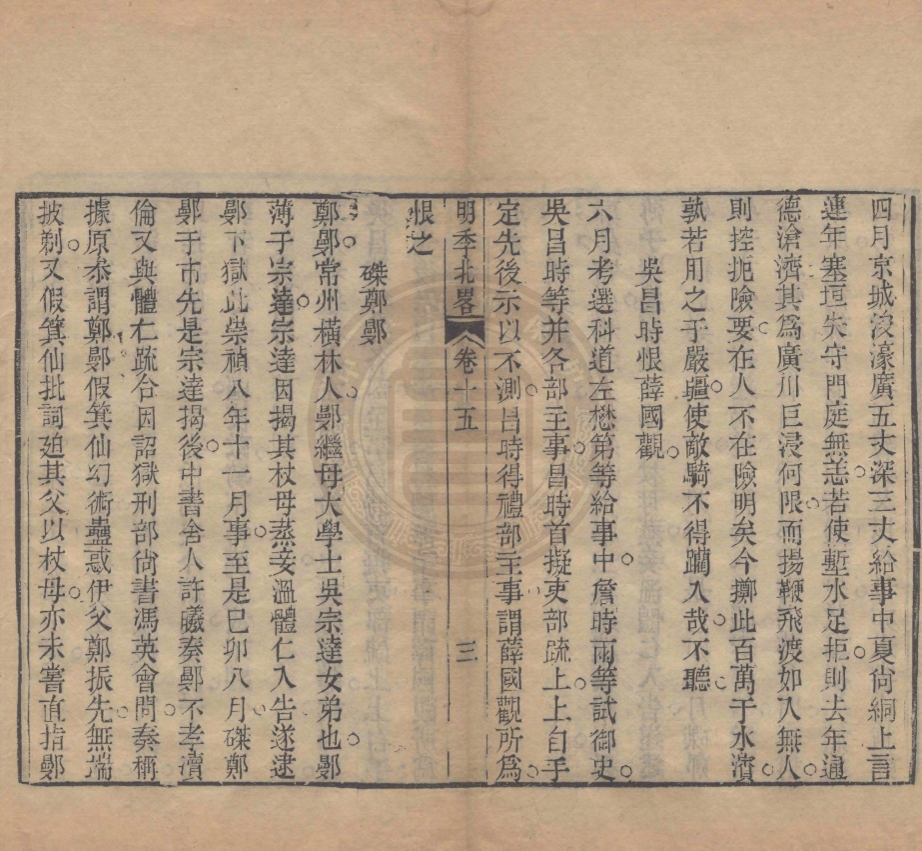 四月京城浚濠廣五丈深三丈給事中夏尙絅上言
連年塞垣失守門庭無恙若使塹水足拒則去年通
德滄濟其爲廣川巨浸何限而揚鞭飛渡如入無人
則控扼險要在人不在險明矣今擲此百萬于水濱
孰若用之于嚴疆使敵騎不得躪入哉不聽
吳昌時恨薛國觀
六月考選科道左懋第等給事中詹時雨等試御史
吳昌時等并各部主事昌時首擬吏部疏上上自手
定先後示以不測昌時得禮部主事謂薛國觀所爲
明季北畧 卷十五 三
恨之
磔鄭鄤
鄭鄤常州橫林人鄤繼母大學士吳宗達女弟也鄤
薄于宗達宗達因揭其杖母蒸妾溫體仁入告遂逮
鄤下獄此崇禎八年十一月事至是巳卯八月磔鄭
鄤于市先是宗達揭後中書舍人許曦奏鄤不孝瀆
倫又與體仁疏合因詔獄刑部尙書馮英會問奏稱
據原叅謂鄭鄤假箕仙幻術蠱惑伊父鄭振先無端
披剃又假箕仙批詞廹其父以杖母亦未嘗直指鄤